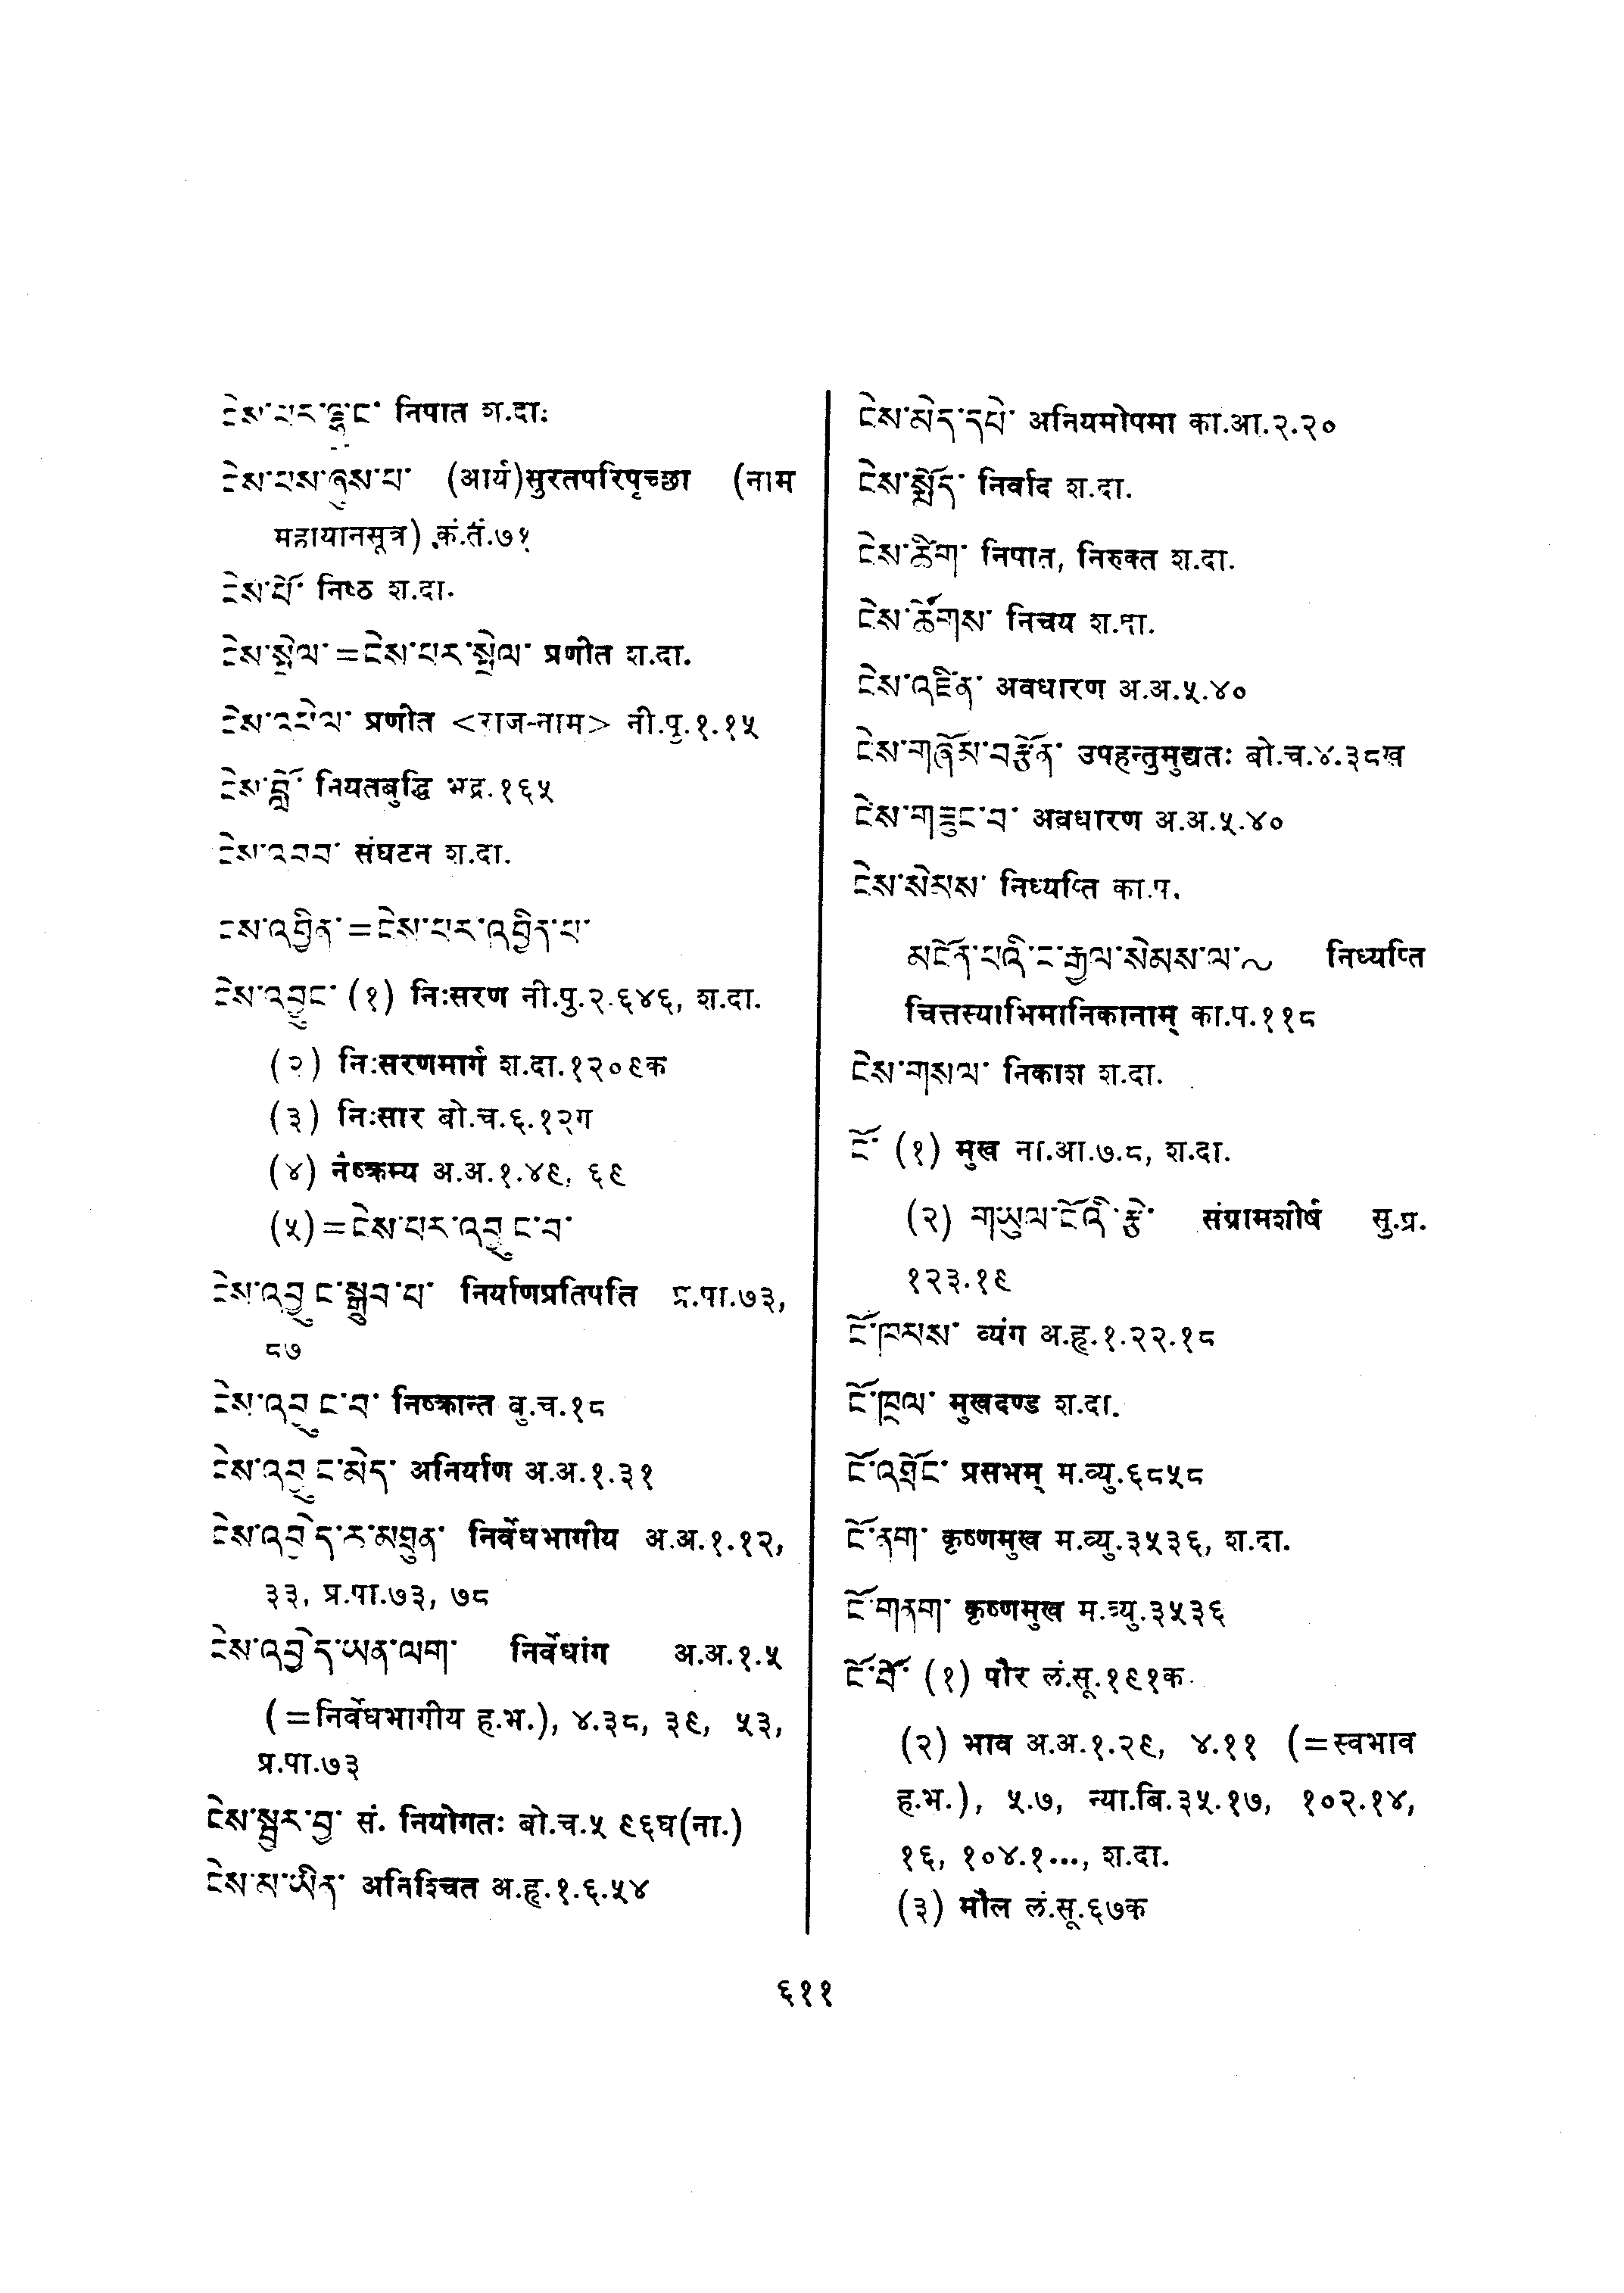 ངེས་པར་ལྷུང་ निपात श.दा.
ངེས་པས་ཞུས་པ་ (आर्य)सुरतपरिपृच्छा (नाम
महायानसूत्र) कं.तं.७१
ངེས་པོ་ निष्ठ श.दा.
ངེས་སྤེལ་=ངེས་པར་སྤེལ་ प्रणीत श.दा.
ངེས་འཕེལ་ प्रणीत <राज-नाम> नी.पु.१.१५
ངེས་བློ་ नियतबुद्धि भद्र.१६५
ངེས་འབབ་ संघटन श.दा.
ངེས་འབྱིན་=ངེས་པར་འབྱིན་པ་
ངེས་འབྱུང་ (१) निःसरण नी.पु.२.६४६, श.दा.
(२) निःसरणमार्ग श.दा.१२०९क
(३) निःसार बो.च.६.१२ग
(४) नैष्क्रम्य अ.अ.१.४९, ६९
(५)=ངེས་པར་འབྱུང་བ་
ངེས་འབྱུང་སྒྲུབ་པ་ निर्याणप्रतिपत्ति प्र.पा.७३,
८७
ངེས་འབྱུང་བ་ निष्क्रान्त बु.च.१८
ངེས་འབྱུང་མེད་ अनिर्याण अ.अ.१.३१
ངེས་འབྱེད་ར་མཐུན་ निर्वेधभागीय अ.अ.१.१२,
३३, प्र.पा.७३, ७८
ངེས་འབྱེད་ཡན་ལག་ निर्वेधांग अ.अ.१.५
(=निर्वेधभागीय ह.भ.), ४.३८, ३९, ५३,
प्र.पा.७३
ངེས་སྦྱར་བྱ་ सं. नियोगतः बो.च.५ ९६घ(ना.)
ངེས་མ་ཡིན་ अनिश्चित अ.हृ.१.६.५४
ངེས་མེད་དཔེ་ अनियमोपमा का.आ.२.२०
ངེས་སྨོད་ निर्वाद श.दा.
ངེས་ཚིག་ निपात, निरुक्त श.दा.
ངེས་ཚོགས་ निचय श.दा.
ངེས་འཛིན་ अवधारण अ.अ.५.४०
ངེས་གཞོམ་བརྩོན་ उपहन्तुमुद्यतः बो.च.४.३८ख
ངེས་གཟུང་བ་ अवधारण अ.अ.५.४०
ངེས་སེམས་ निध्यप्ति का.प.
མངོན་པའི་ང་རྒྱལ་སེམས་ལ་~ निध्यप्ति
चित्तस्याभिमानिकानाम् का.प.११८
ངེས་གསལ་ निकाश श.दा.
ངོ་ (१) मुख ना.आ.७.८, श.दा.
(२) གཡུལ་ངོའི་རྩེ་ संग्रामशीर्ष सु.प्र.
१२३.१९
ངོ་ཁམས་ व्यंग अ.हृ.१.२२.१८
ངོ་ཁྲལ་ मुखदण्ड श.दा.
ངོ་འཕྲོང་ प्रसभम् म.व्यु.६८५८
ངོ་ནག་ कृष्णमुख म.व्यु.३५३६, श.दा.
ངོ་གནག་ कृष्णमुख म.व्यु.३५३६
ངོ་བོ་ (१) पौर लं.सू.१९१क
(२) भाव अ.अ.१.२९, ४.११ (=स्वभाव
ह.भ.), ५.७, न्या.बि.३५.१७, १०२.१४,
१६, १०४.१..., श.दा.
(३) मौल लं.सू.६७क
६११